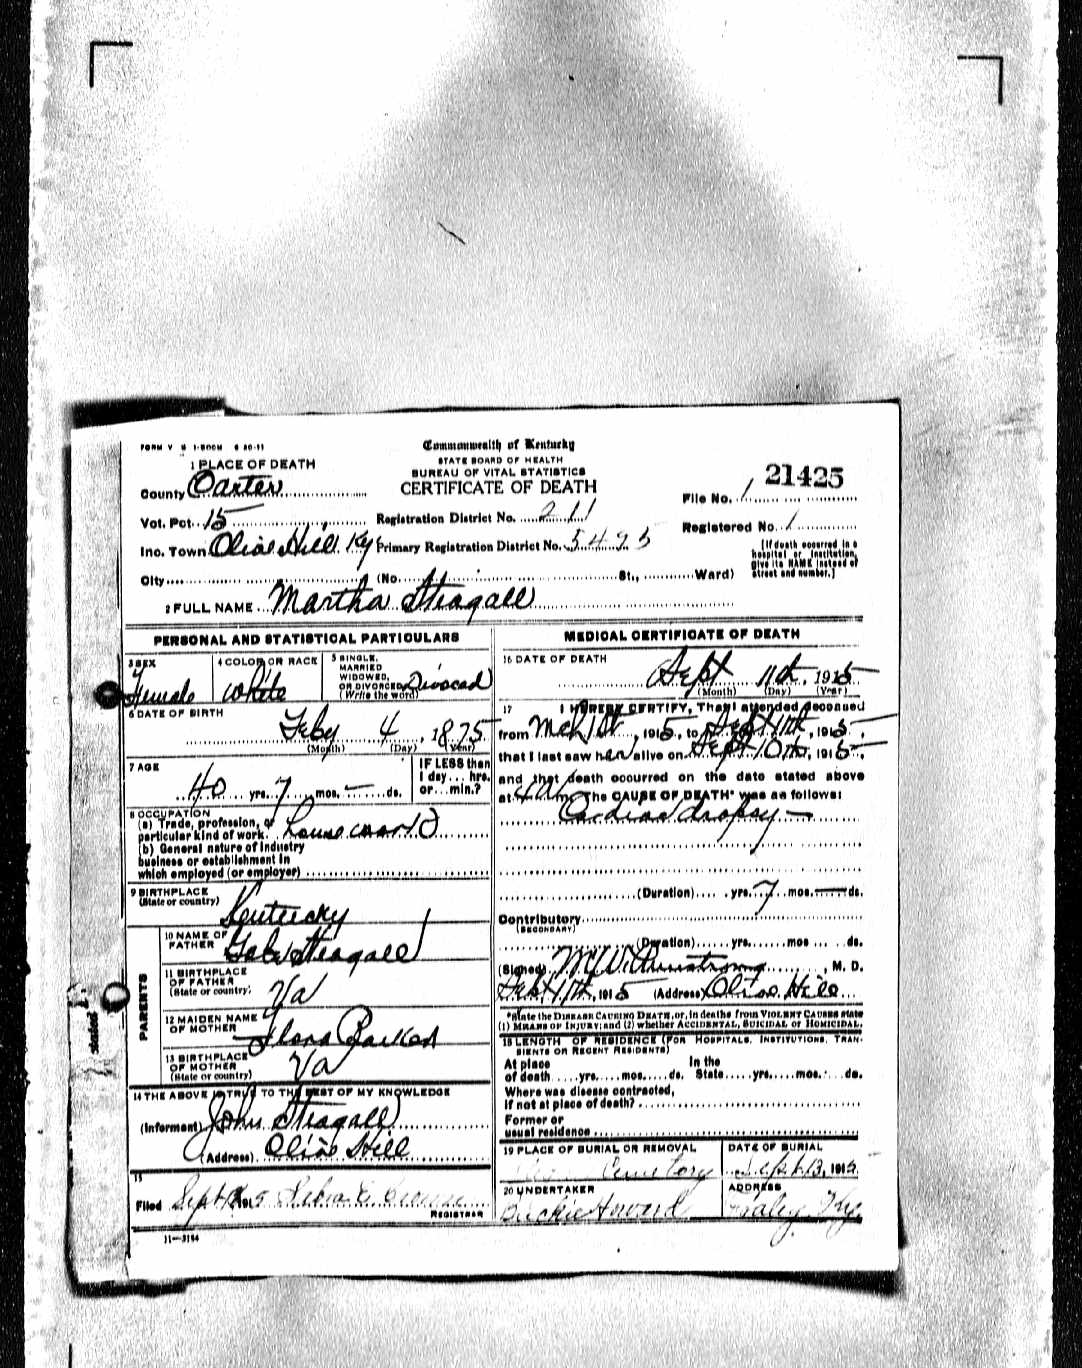 FORM V S 1-500M 6 20-11
Commonwealth of Kentucky
STATE BOARD OF HEALTH
BUREAU OF VITAL STATISTICS
CERTIFICATE OF DEATH
1 PLACE OF DEATH
County Carter
Vot. Pct. 15
Inc. Town Olive Hill Ky
City
Registration District No. 211
Primary Registration District No. 5495
(No. St., Ward)
21425
File No. 1
Registered No. 1
[If death occurred in a
hospital or institution,
give its NAME instead of
street and number.]
2 FULL NAME Martha Steagall
PERSONAL AND STATISTICAL PARTICULARS
3 SEX
Female
4 COLOR OR RACE
White
5 SINGLE,
MARRIED
WIDOWED,
OR DIVORCED
(Write the word)
Divocad
6 DATE OF BIRTH
Feby 4, 1875
(Month) (Day) (Year)
7 AGE
40 yrs. 7 mos. — ds.
IF LESS than
1 day... hrs.
or... min.?
8 OCCUPATION
(a) Trade, profession, or
particular kind of work. House work
(b) General nature of Industry
business or establishment in
which employed (or employer)
9 BIRTHPLACE
(State or country)
Kentucky
PARENTS
10 NAME OF
FATHER
Gabe Steagall
11 BIRTHPLACE
OF FATHER
(State or country)
Va
12 MAIDEN NAME
OF MOTHER
Flora
13 BIRTHPLACE
OF MOTHER
(State or country)
Va
14 THE ABOVE IS TRUE TO THE BEST OF MY KNOWLEDGE
(Informant) John Steagall
(Address) Olive Hill
15
Filed Sept 1915
REGISTRAR
11—3184
MEDICAL CERTIFICATE OF DEATH
16 DATE OF DEATH
Sept 11th, 1915
(Month) (Day) (Year)
17 I HEREBY CERTIFY, That I attended deceased
from Mch 1st, 1915, to Sept 11th, 1915,
that I last saw her alive on Sept 10th, 1915,
and that death occurred on the date stated above
at 4 A m. The CAUSE OF DEATH* was as follows:
Cardiac dropsy —
(Duration) yrs. 7 mos. — ds.
Contributory
(SECONDARY)
(Duration) yrs. mos. ds.
(Signed) M W Armstrong, M. D.
Sept 11th, 1915 (Address) Olive Hill
*State the DISEASE CAUSING DEATH, or, in deaths from VIOLENT CAUSES state
(1) MEANS OF INJURY; and (2) whether ACCIDENTAL, SUICIDAL or HOMICIDAL.
18 LENGTH OF RESIDENCE (FOR HOSPITALS, INSTITUTIONS, TRAN-
SIENTS OR RECENT RESIDENTS)
At place In the
of death yrs. mos. ds. State yrs. mos. ds.
Where was disease contracted,
if not at place of death?
Former or
usual residence
19 PLACE OF BURIAL OR REMOVAL
Cemetery
DATE OF BURIAL
Sept 13, 1915
20 UNDERTAKER
Howard
ADDRESS
Haley, Ky.